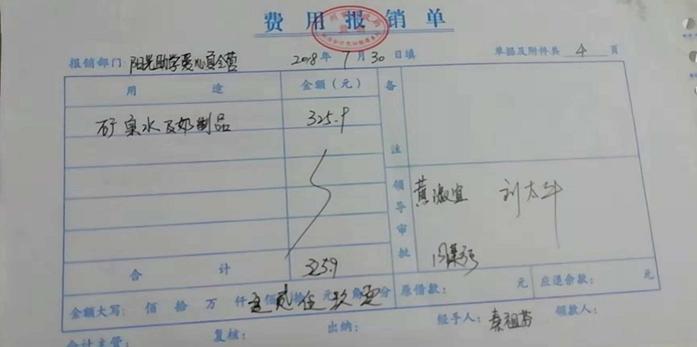 费用报销单
报销部门：阳光助学爱心夏令营 2018年 月30日填 单据及附件共 4 页
用途 金额（元） 备注
矿泉水及奶制品 325.9
领导审批
黄淑宜 刘太牛
合计 325.9
金额大写： 佰 拾 万 仟 佰 拾 元 角 分 原借款： 元 应退余款： 元
会计主管： 复核： 出纳： 经手人： 秦祖芬 领款人：